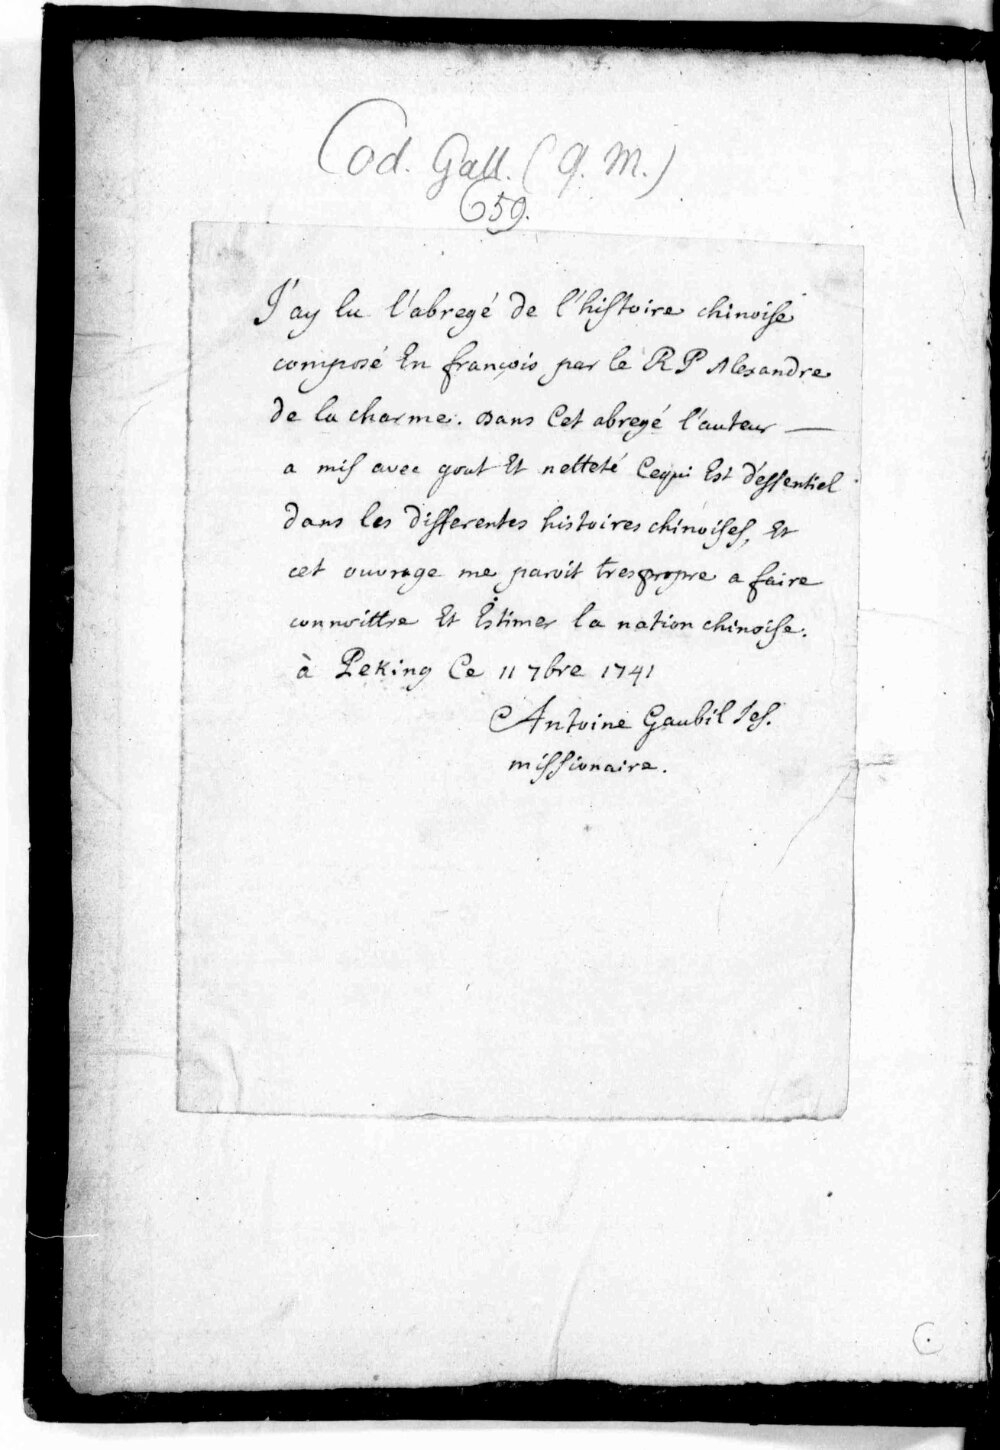 Cod. Gall. (Q. M.)
659.
J'ay lu l'abregé de l'histoire chinoise
composé En françois par le R P Alexandre
de la charme. Dans Cet abregé l'auteur —
a mis avec gout Et netteté Cequi Est d'essentiel
dans les differentes histoires chinoises, Et
cet ouvrage me paroit trespropre a faire
connoittre Et Estimer la nation chinoise.
à Peking Ce 11 7bre 1741
Antoine Gaubil Jes.
missionaire.
C.